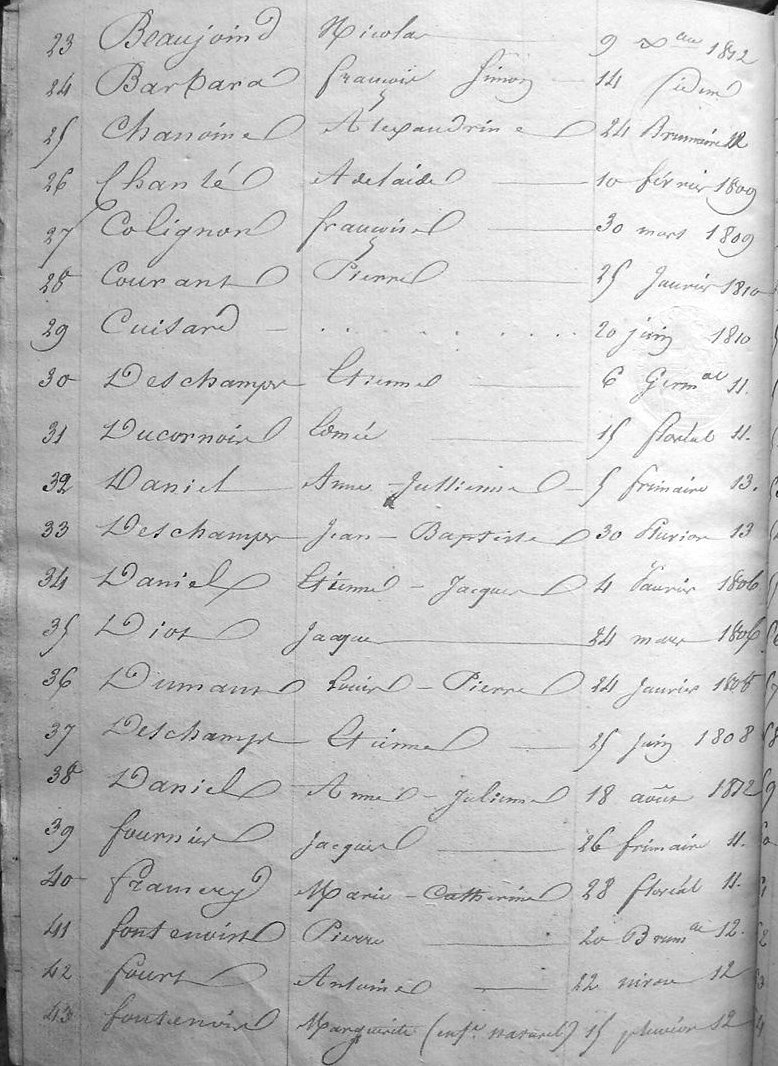 23 Beaujoin Nicolas 9 Xbre 1812
24 Barbara françois Simon 14 idem
25 Chanoine Alexandrine 24 Brumaire 12
26 Chanlé Adelaide 10 février 1809
27 Colignon françoise 30 mars 1809
28 Courant Pierre 25 Janvier 1810
29 Cuisard - . . . . . . . 20 juin 1810
30 Deschamps Etienne 6 Germal 11.
31 Ducornoir Edmée 15 floréal 11.
32 Daniel Anne Jullienne 5 frimaire 13.
33 Deschamps Jean-Baptiste 30 Pluviose 13
34 Daniel Etienne-Jacques 4 Janvier 1806
35 Diot Jacques 24 mars 1806
36 Dumans Louis-Pierre 24 Janvier 1808
37 Deschamps Etienne 25 juin 1808
38 Daniel Anne-Julienne 18 août 1812
39 fournier Jacques 26 frimaire 11.
40 framery Marie-Catherine 28 floréal 11.
41 fontenoist Pierre 20 Brumre 12.
42 fourt Antoine 22 nivose 12
43 fontenoir Marguerite (enft naturel) 15 pluviose 12